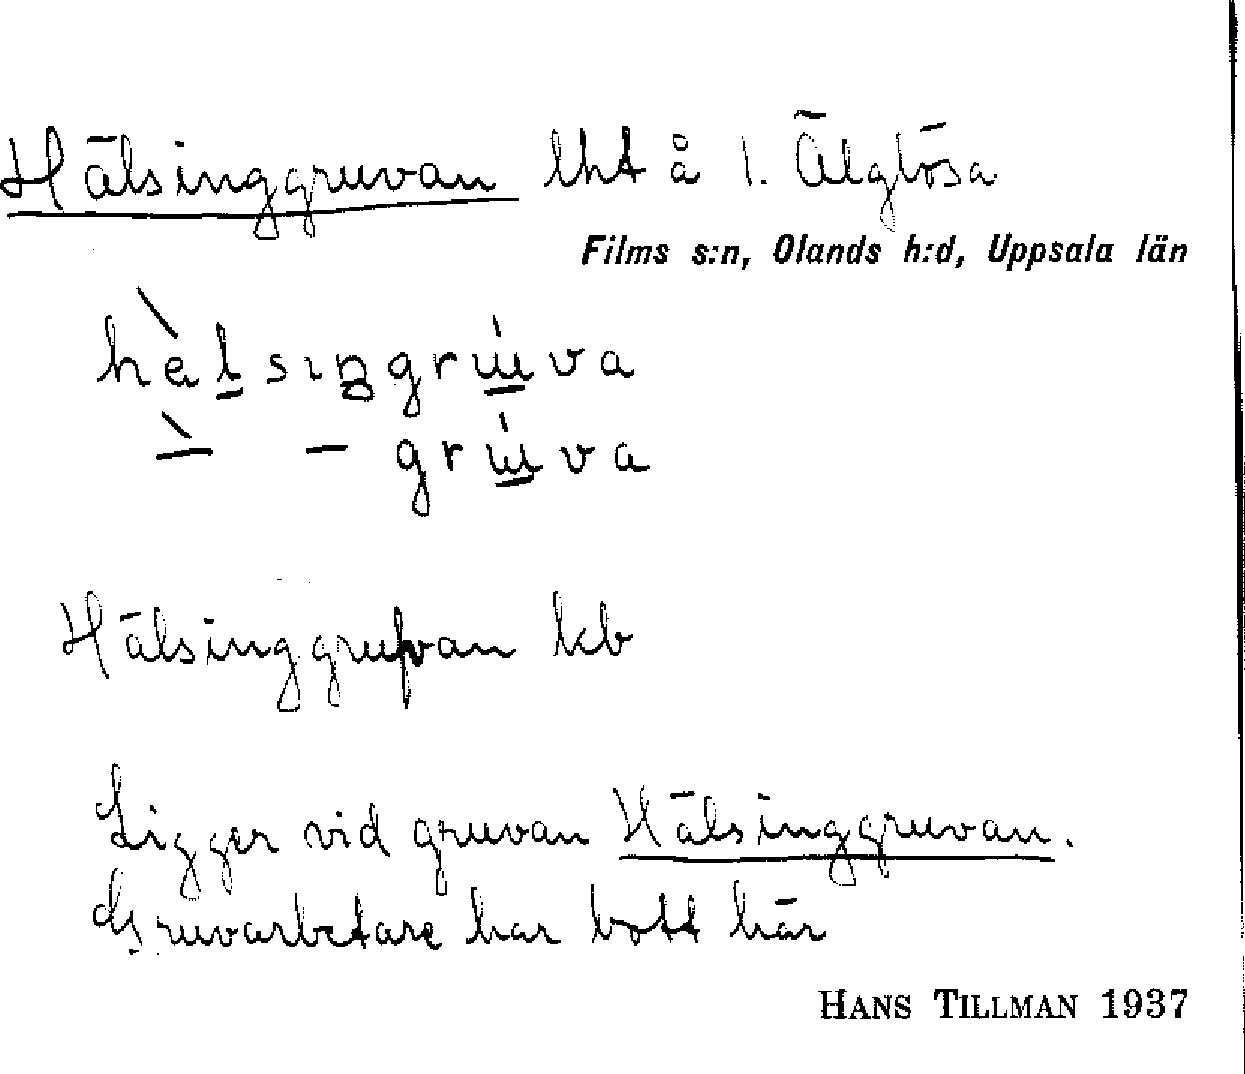 Hälsinggruvan lht å 1. Älglösa
Films s:n, Olands h:d, Uppsala län
hàlsıŋgrɯ́va
⸌– – grɯ́va
Hälsinggrufvan kb
Ligger vid gruvan Hälsinggruvan.
Gruvarbetare har bott här
HANS TILLMAN 1937